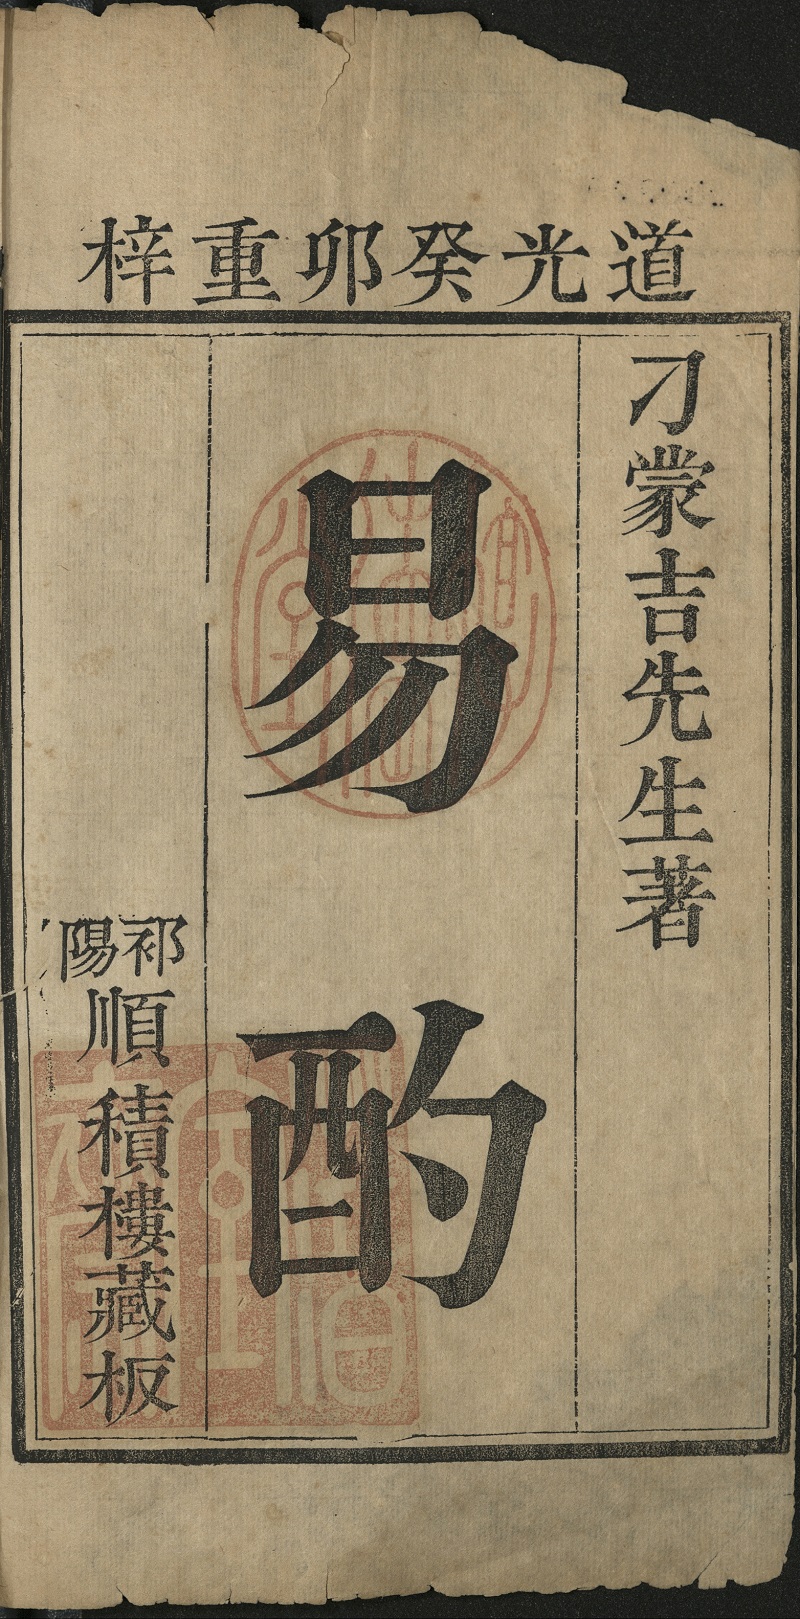 道光癸卯重梓
刁蒙吉先生著
易酌
祁陽順積樓藏板